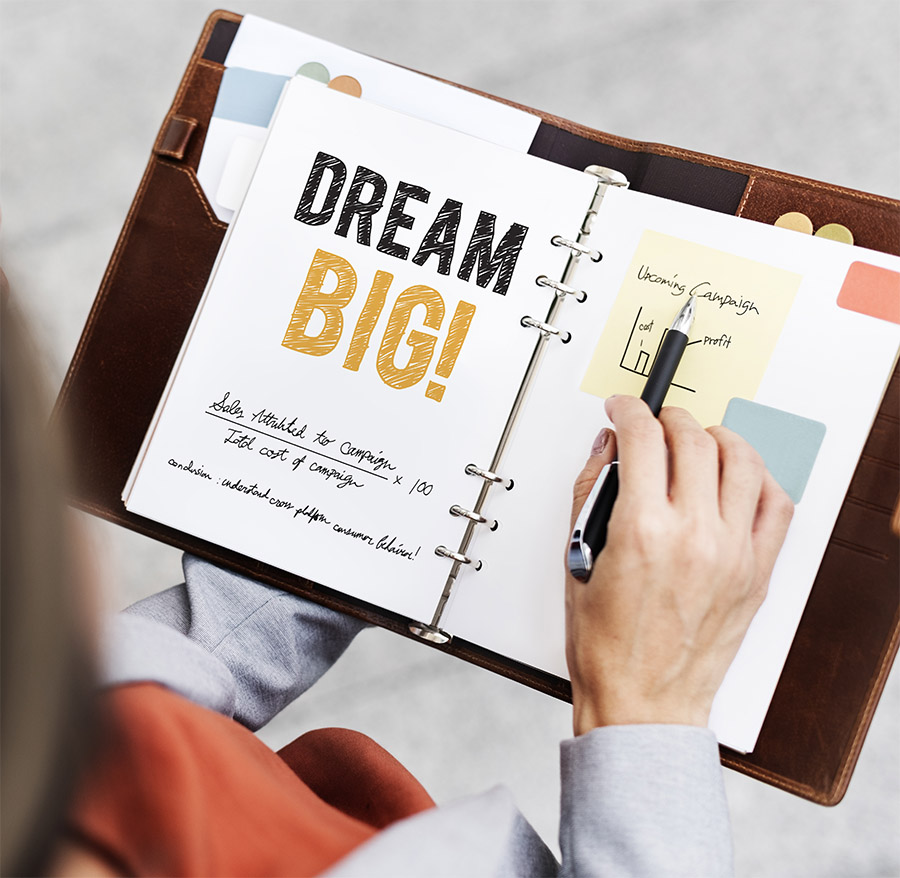 DREAM
BIG!
Sales Attributed to Campaign
Total cost of campaign × 100
conclusion : understand cross platform consumer behavior!
Upcoming Campaign
cost
profit